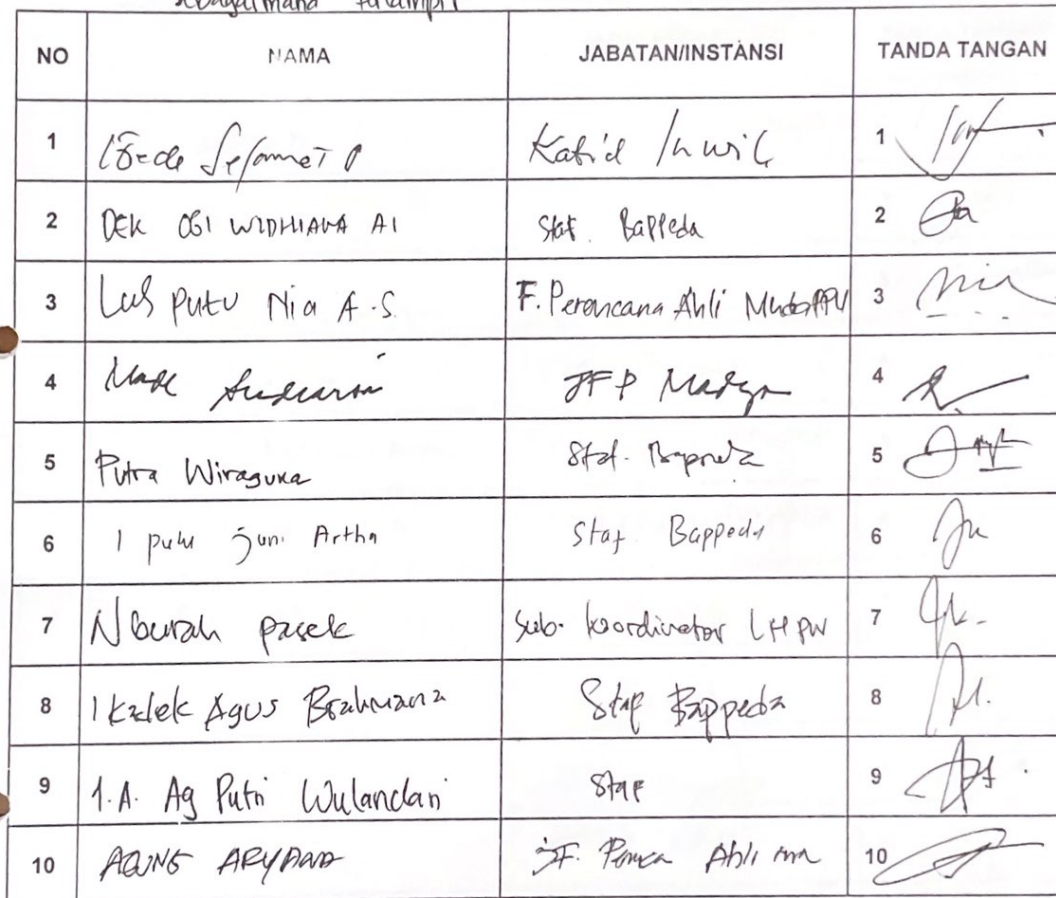 sebagaimana
NO NAMA JABATAN/INSTANSI TANDA TANGAN
1 Kabid Inwil 1
2 DEK OGI WIDHIANA AI Staf. Bappeda 2
3 Luh Putu Nia A.S. F. Perencana Ahli Muda PPU 3
4 Made JFP Madya 4
5 Putra Wiraguna Staf. Bappeda 5
6 I putu juni Artha Staf Bappeda 6
7 Ngurah pasek Sub. koordinator LHPW 7
8 I Kadek Agus Brahmana Staf Bappeda 8
9 I.A. Ag Putri Wulandari Staf 9
10 AGUNG ARYANA JF. Ahli 10